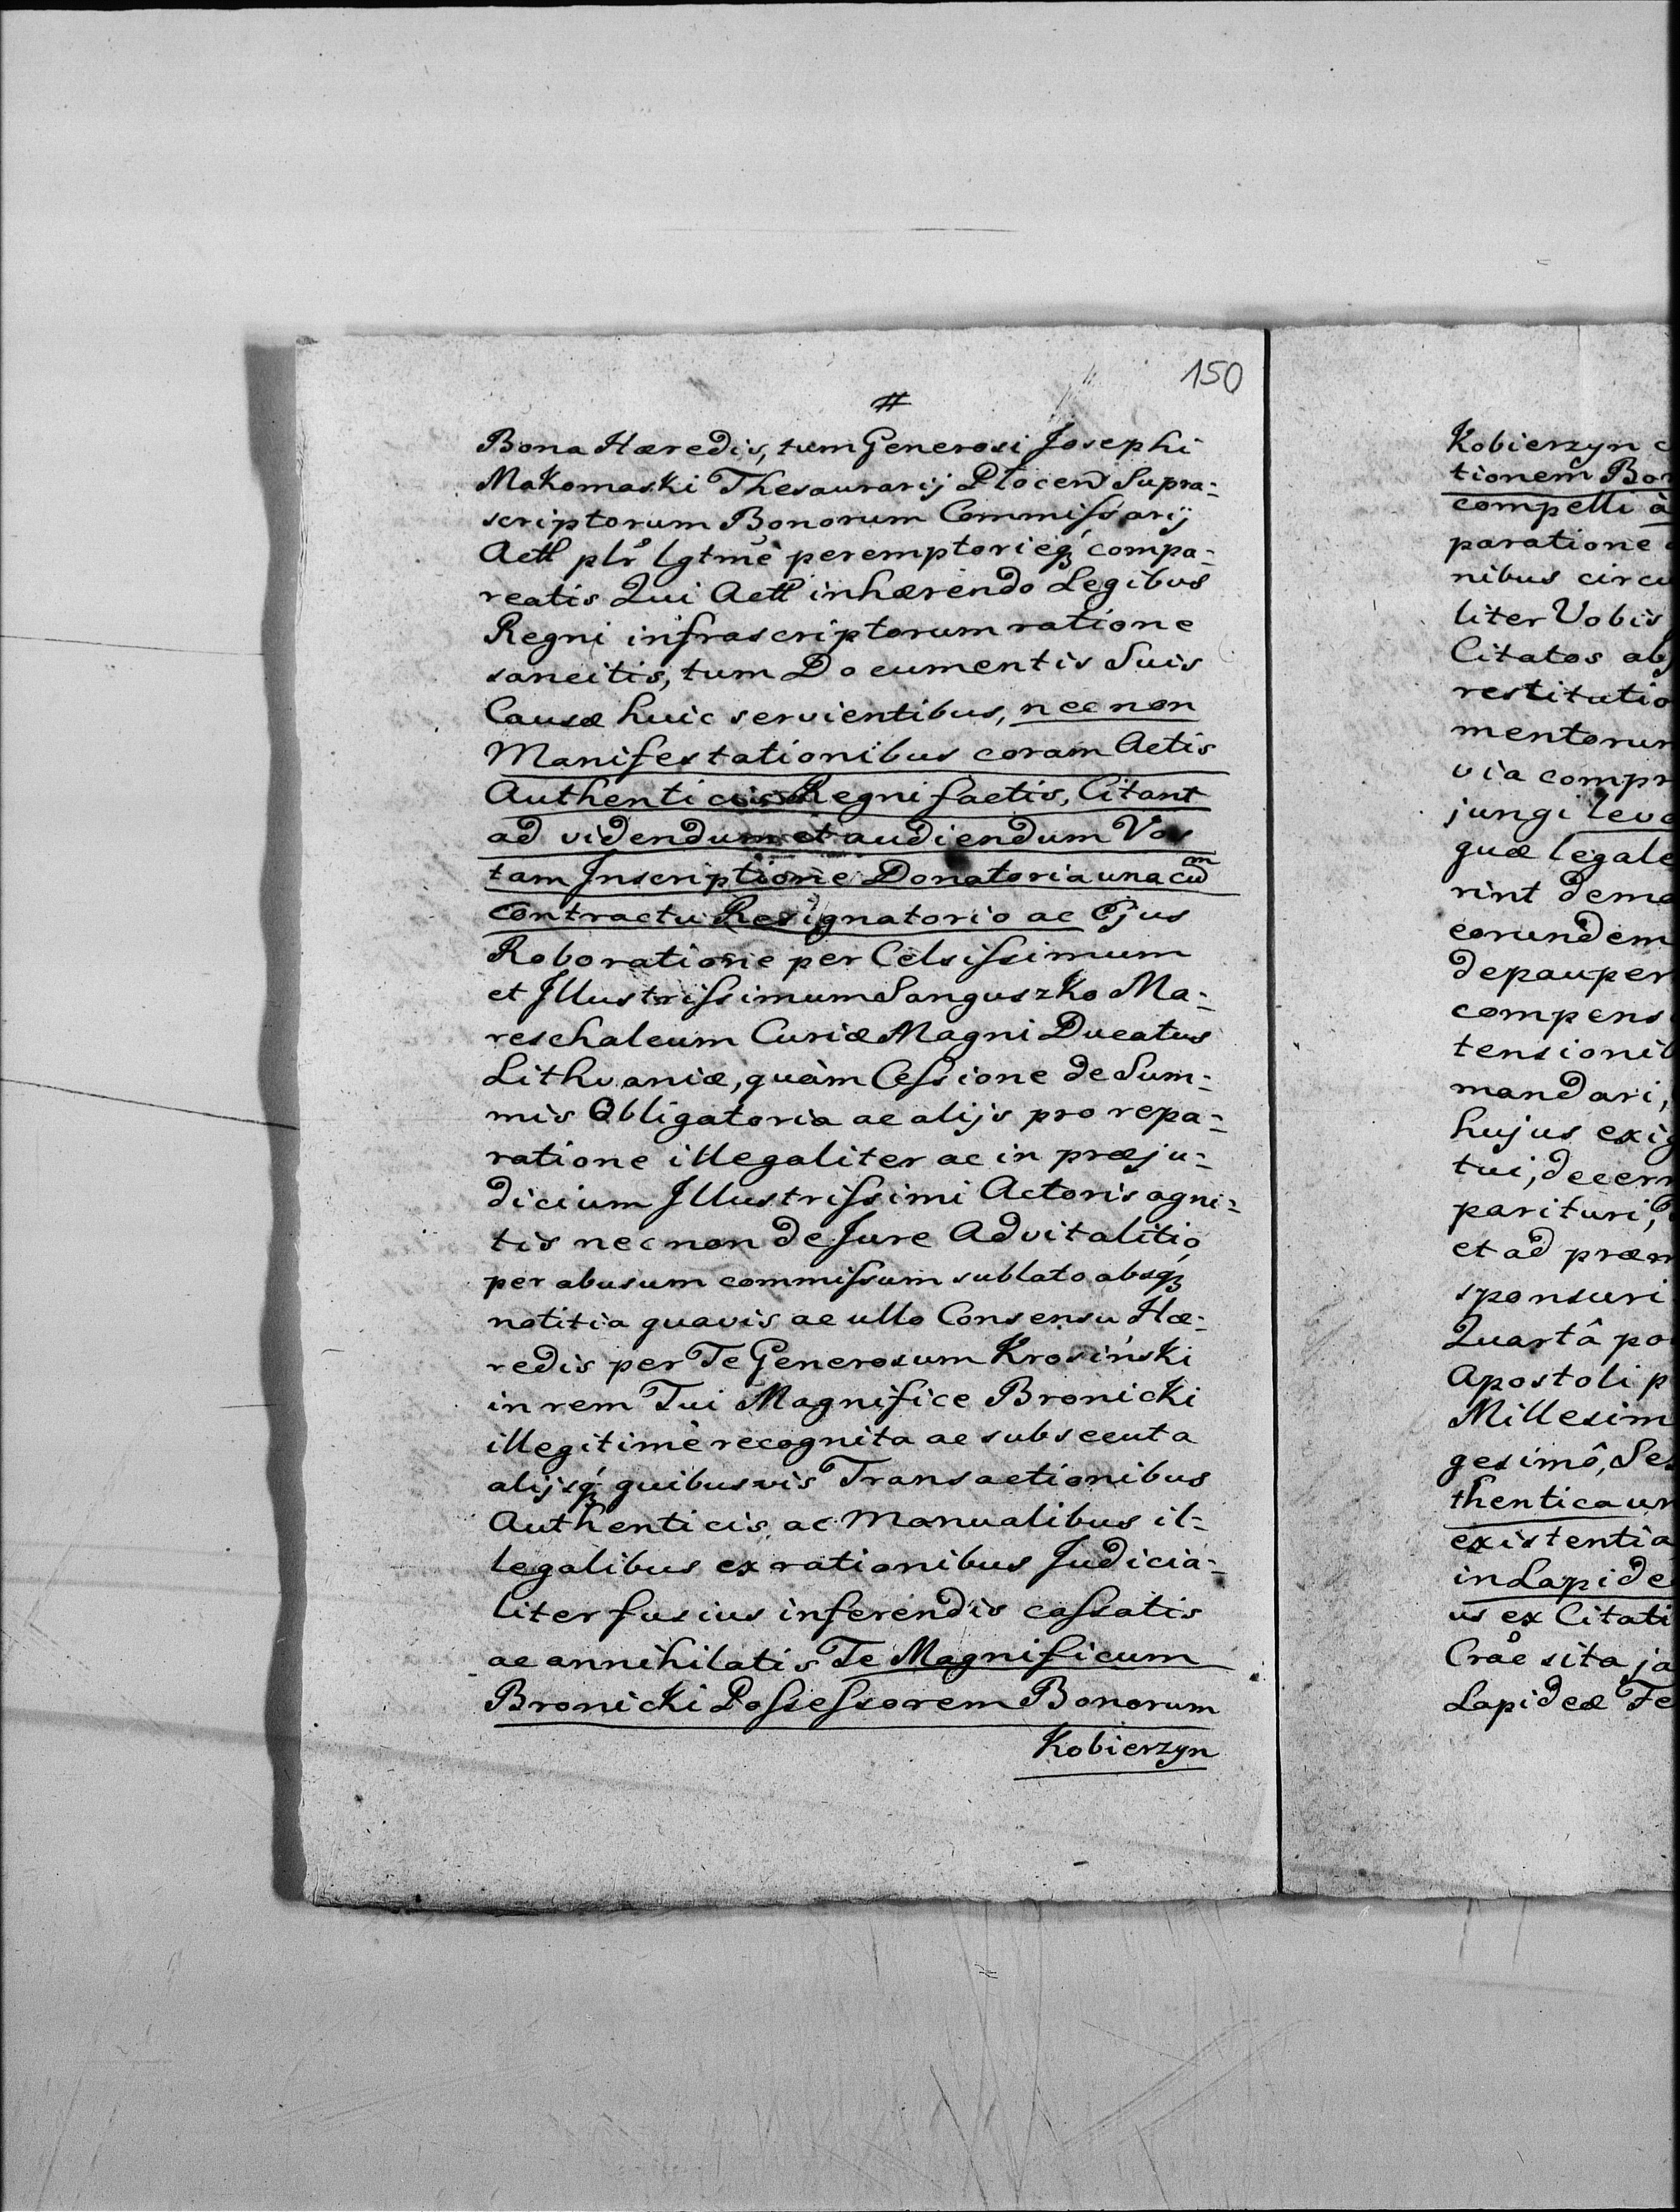 150
#
Bona Hæredis, tum Generosi Josephi
Makomaski Thesaurarij Plocen Supra=
scriptorum Bonorum Commissarij
Actt plr̊ lgtme peremptorieq; compa=
reatis Qui Actt inhærendo Legibus
Regni infrascriptorum ratione
sancitis, tum Documentis Suis
Causæ huic servientibus, nec non
Manifestationibus coram Actis
Authenticis Regni factis, Citant
ad videndum et audiendum Vos
tam Inscriptione Donatoria una cum
contractu Resignatorio ac Ejus
Roboratione per Celsissimum
et Illustrissimum Sanguszko Ma=
reschalcum Curiæ Magni Ducatus
Lithvaniæ, quàm Cessione de Sum=
mis Obligatoria ac alijs pro repa=
ratione illegaliter ac in præju=
dicium Illustrissimi Actoris agni=
tis nec non de Jure Advitalitio
per abusum commissum sublato absq;
notitia quavis ac ullo Consensu Hæ=
redis per Te Generosum Krosiński
in rem Tui Magnifice Bronicki
illegitimè recognita ac subsecuta
alijsq; quibusvis Transactionibus
Authenticis ac Manualibus il=
legalibus ex rationibus Judicia=
liter fusius inferendis cassatis
ac annihilatis Te Magnificum
Bronicki Possessorem Bonorum
Kobierzyn
Kobierzyn c
tionem Bon
compelli à
paratione
nibus circu
liter Vobis
Citatos abs
restitutio
mentorum
via compr
jungi leva
quæ legale
rint dema
eorundem
depauper
compens
tensionib
mandari,
hujus exig
tui, decern
parituri,
et ad præm
sponsuri
Quartâ po
Apostoli p
Millesim
gesimô, Se
thentica un
existentia
in Lapide
us ex Citati
Crae̊ sita ja
Lapideæ Fe